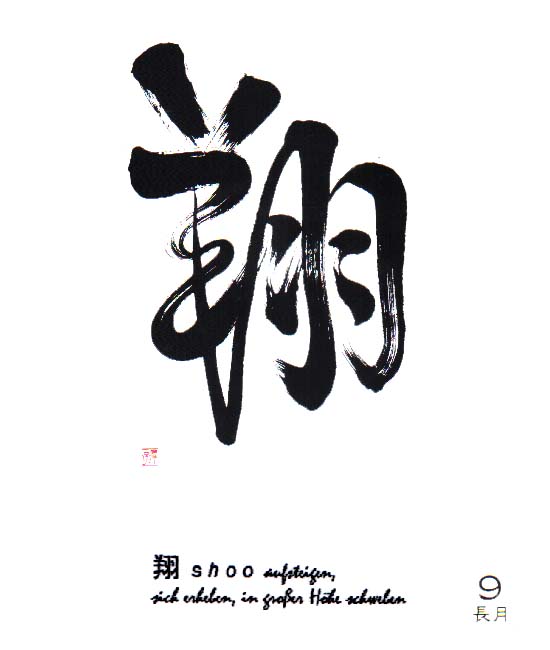 翔
翔 shoo aufsteigen,
sich erheben, in großer Höhe schweben
9
長月